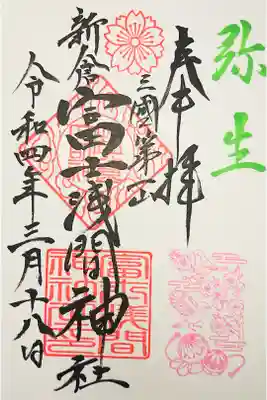 弥生
奉拝
三國第一
新倉富士浅間神社
令和四年三月十八日